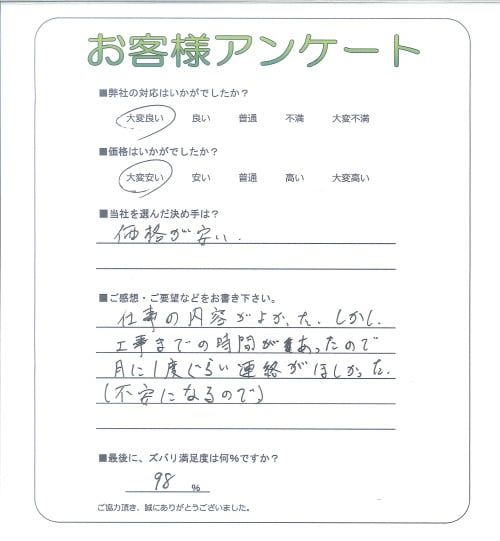 お客様アンケート
■弊社の対応はいかがでしたか？
大変良い 良い 普通 不満 大変不満
■価格はいかがでしたか？
大変安い 安い 普通 高い 大変高い
■当社を選んだ決め手は？
価格が安い.
■ご感想・ご要望などをお書き下さい。
仕事の内容がよかった. しかし.
工事までの時間があったので
月に1度ぐらい連絡がほしかった.
(不安になるので)
■最後に、ズバリ満足度は何%ですか？
98 %
ご協力頂き、誠にありがとうございました。